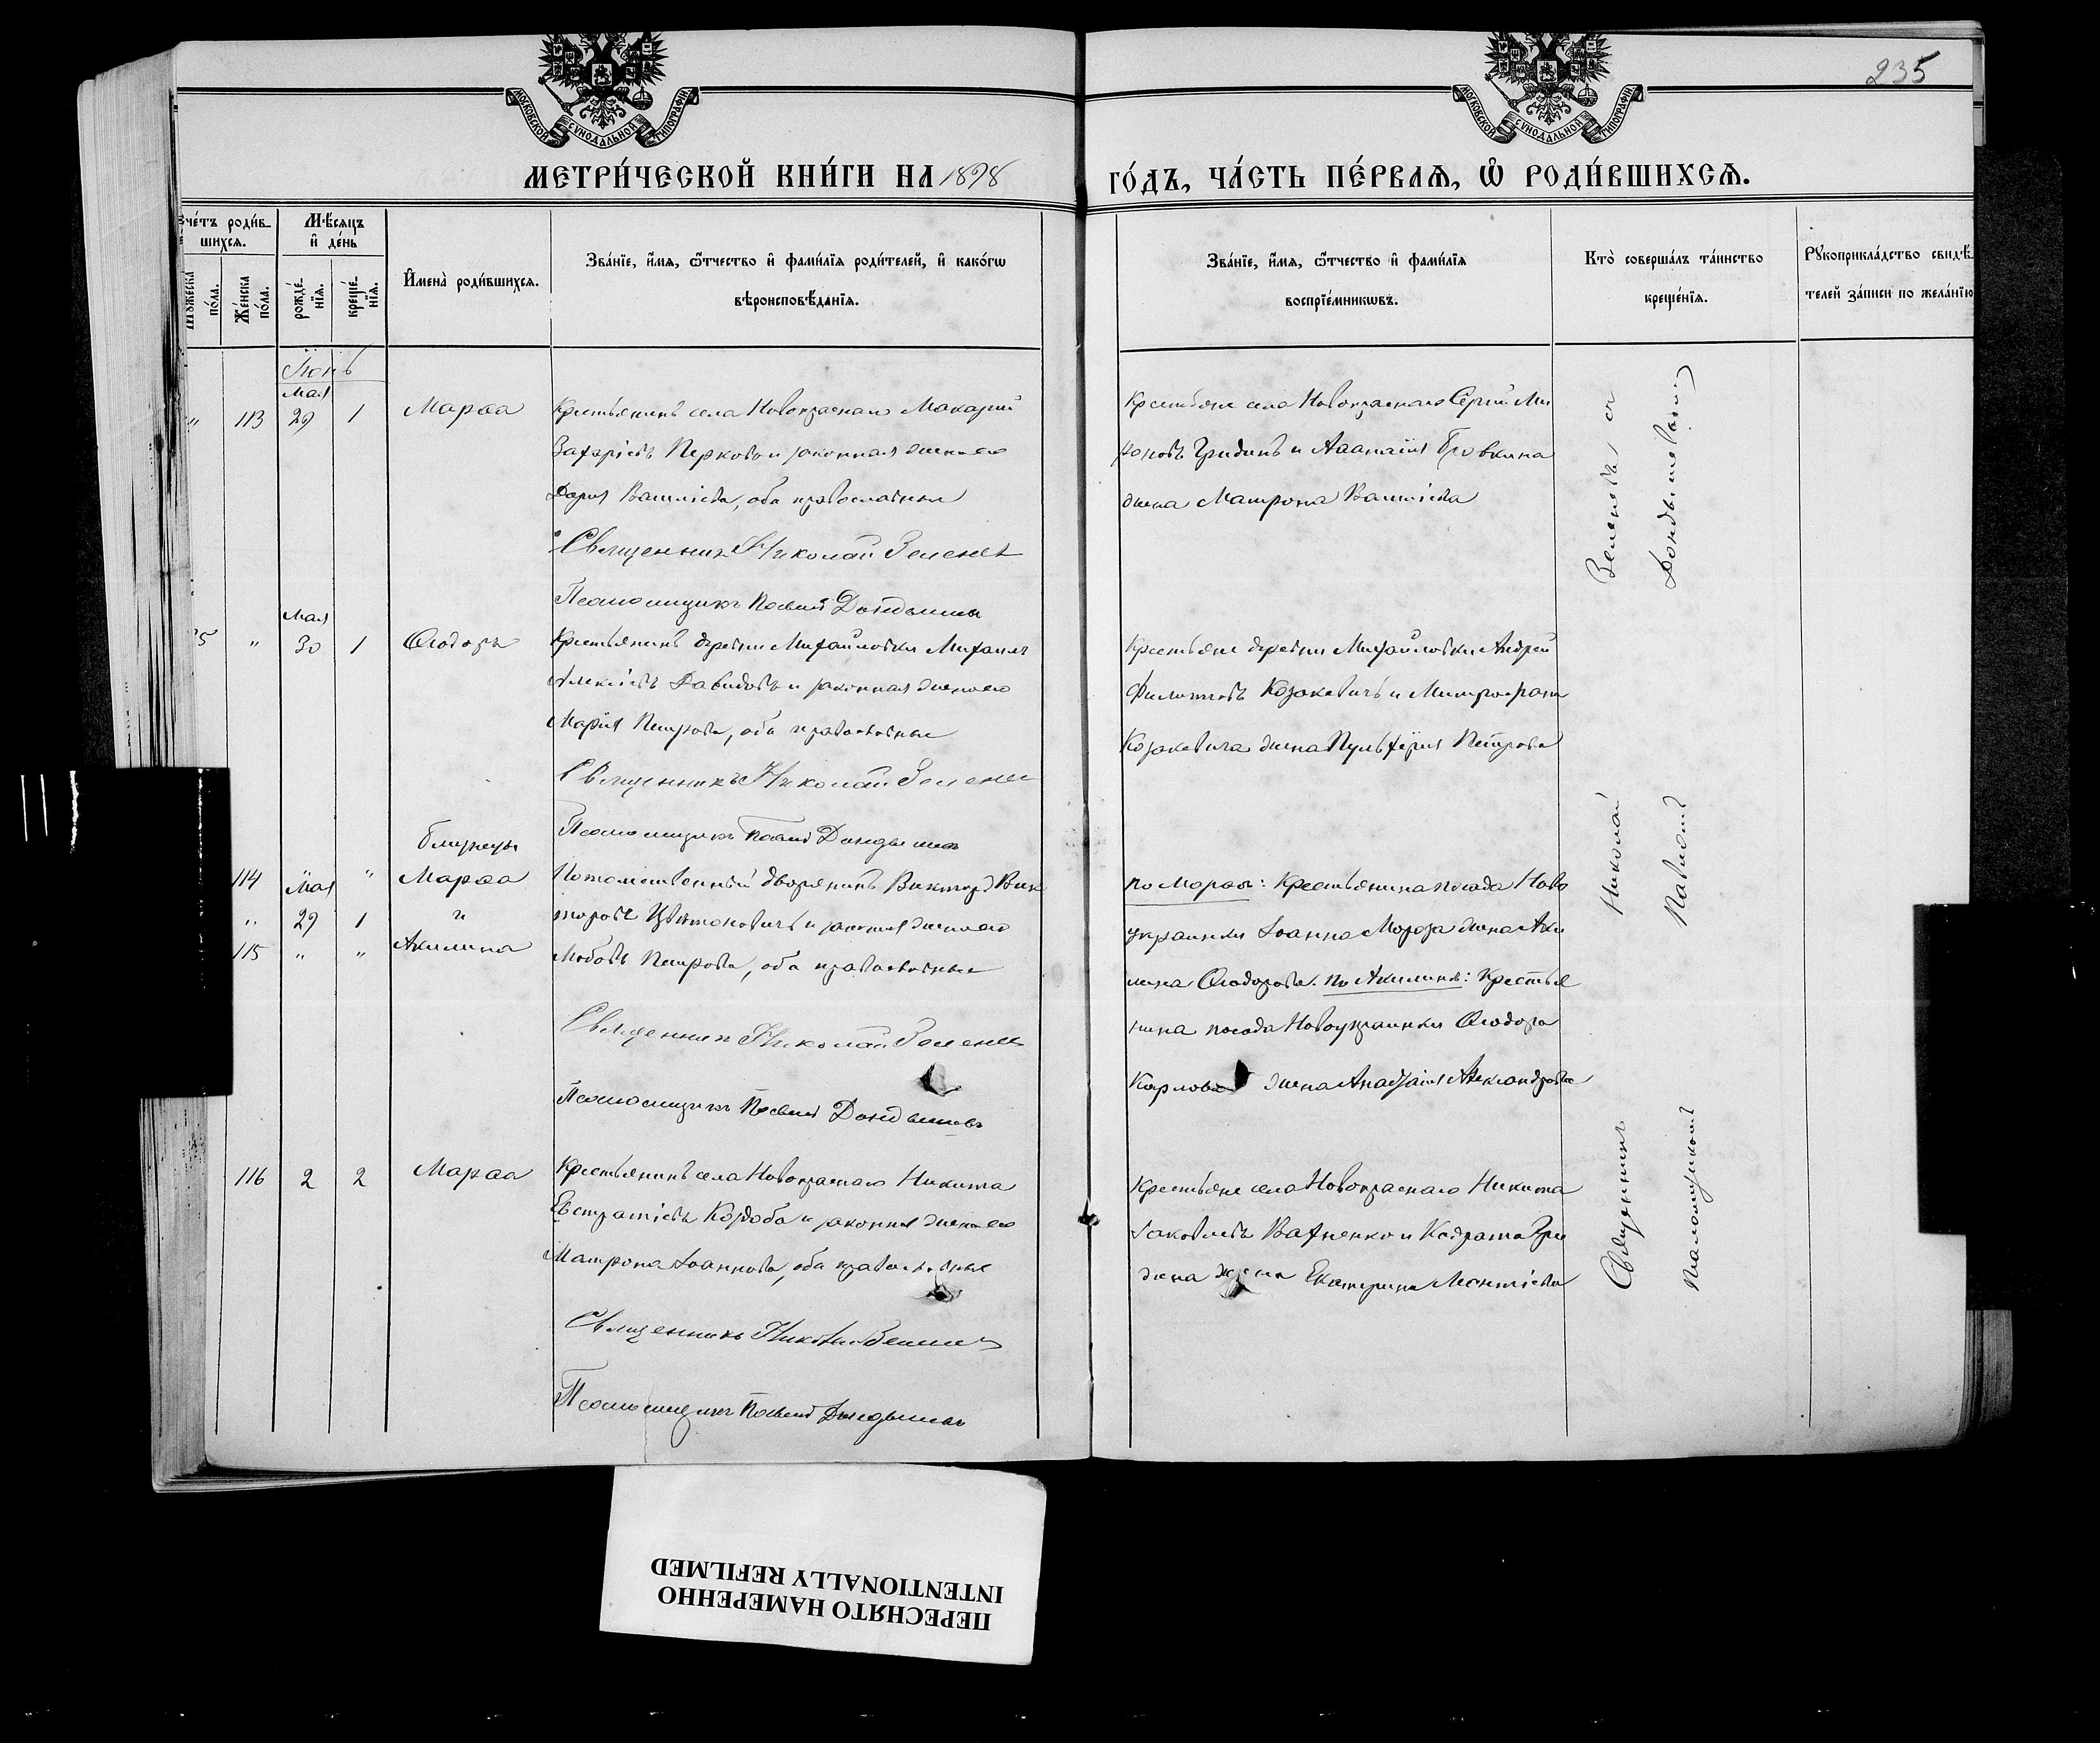 235
МОСКОВСКОЙ СУНОДАЛЬНОЙ ТИПОГРАФІИ
МОСКОВСКОЙ СУНОДАЛЬНОЙ ТИПОГРАФІИ
МЕТРИ́ЧЕСКОЙ КНИ́ГИ НА 1898 ГО́ДЪ, ЧА́СТЬ ПЕ́РВАѦ, Ѽ РОДИ́ВШИХСѦ.
Сче́тъ роди́в
шихсѧ.
Мѣ́сѧцъ
и҆ де́нь
Мꙋжеска по́ла.
Же́нска по́ла.
рожде́нїѧ.
креще́нїѧ.
И҆мена̀ роди́вшихсѧ.
Зва́нїе, и҆́мѧ, ѻ҆́тчество и҆ фами́лїѧ роди́телей, и҆ како́гѡ
вѣроисповѣ́данїѧ.
Зва́нїе, и҆́мѧ, ѻ҆́тчество и҆ фами́лїѧ
воспрїе́мникѡвъ.
Кто̀ соверша́лъ та́инство
креще́нїѧ.
Рꙋкоприкла́дство свидѣ́
телей за́писи по жела́нїю
Іюнь
Мая
" 113 29 1 Марѳа
Крестьянинъ села Новокраснаго Макарій
Захаріевъ Перковъ и законная жена его
Дарія Василіева, оба православные
Священникъ Николай Зеленев
Псаломщикъ Павелъ Дондышевъ
Крестьяне села Новокраснаго Сергій Ми
роновъ Гридинъ и Аѳанасія Бровкина
жена Матрона Василіева
Мая
5 " 30 1 Ѳеодоръ
Крестьянинъ деревни Михайловки Михаилъ
Алексіевъ Давидовъ и законная жена его
Марія Петрова, оба православные
Священникъ Николай Зеленев
Псаломщикъ Павелъ Дондышевъ
Крестьяне деревни Михайловки Андрей
Филипповъ Козакевичъ и Митрофана
Козакевича жена Пульхерія Петрова
Близнецы
114 Мая " Марѳа
" 29 1 и
115 " " Акилина
Потомственный дворянинъ Викторъ Вик
торовъ и законная жена его
Любовь Петрова, оба православные
Священникъ Николай Зеленев
Псаломщикъ Павелъ Дондышевъ
по Марѳѣ: Крестьянина посада Ново
украинки Іоанна Мороза жена Аки
лина Ѳеодорова. по Акилинѣ: Крестья
нина посада Новоукраинки Ѳеодора
Карлова жена Александрова
116 2 2 Марѳа
Крестьянинъ села Новокраснаго Никита
Евстратіевъ Короба и законная жена его
Матрона Іоаннова, оба православные
Священникъ Николай Зеленев
Псаломщикъ Павелъ Дондышевъ
Крестьяне села Новокраснаго Никита
Іаковлевъ Вахненко и Кодрата Гри
дина жена Екатерина Леонтіева
Священникъ Николай Зеленевъ съ
Псаломщикомъ Павломъ Дондышевымъ
ПЕРЕСНЯТО НАМЕРЕННО
INTENTIONALLY REFILMED